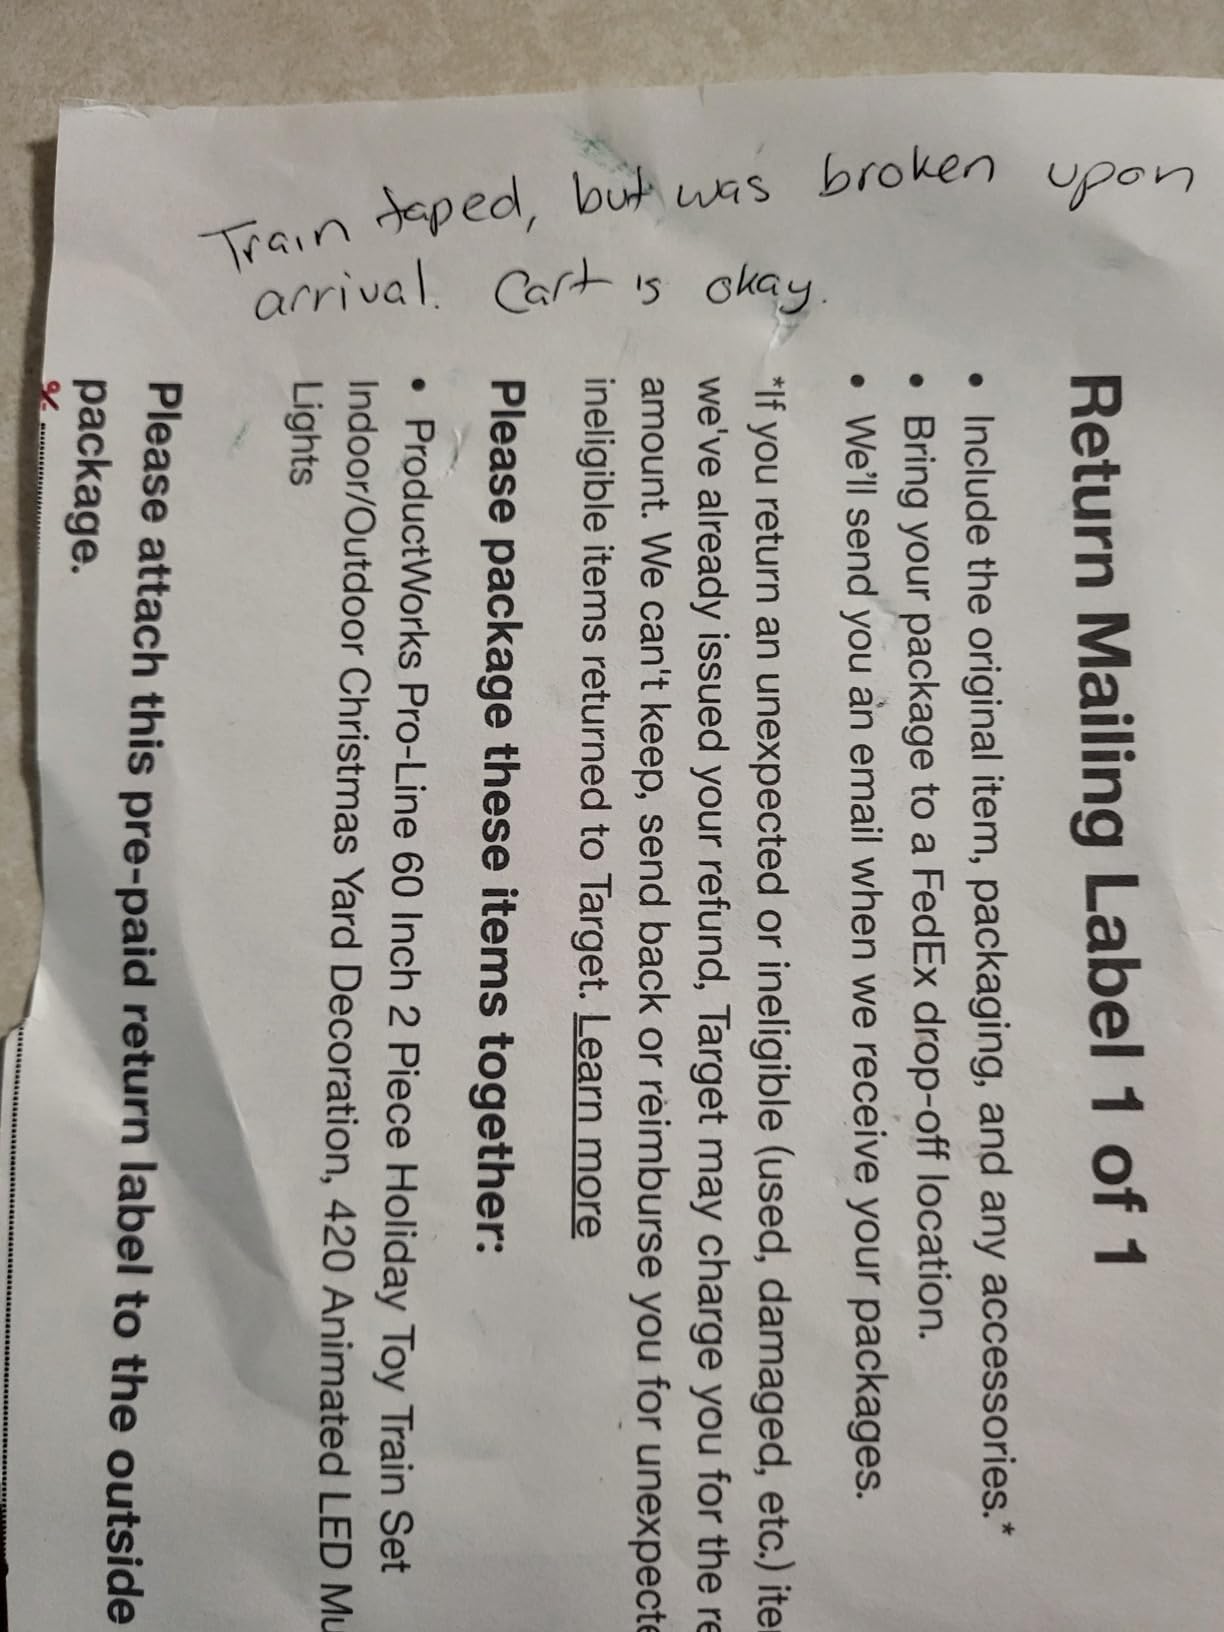 Train taped, but was broken upon
arrival. Cart is okay.
Return Mailing Label 1 of 1
• Include the original item, packaging, and any accessories.*
• Bring your package to a FedEx drop-off location.
• We'll send you an email when we receive your packages.
*If you return an unexpected or ineligible (used, damaged, etc.)
we've already issued your refund, Target may charge you for the
amount. We can't keep, send back or reimburse you for
ineligible items returned to Target. Learn more
Please package these items together:
• ProductWorks Pro-Line 60 Inch 2 Piece Holiday Toy Train Set
Indoor/Outdoor Christmas Yard Decoration, 420 Animated LED
Lights
Please attach this pre-paid return label to the outside
package.